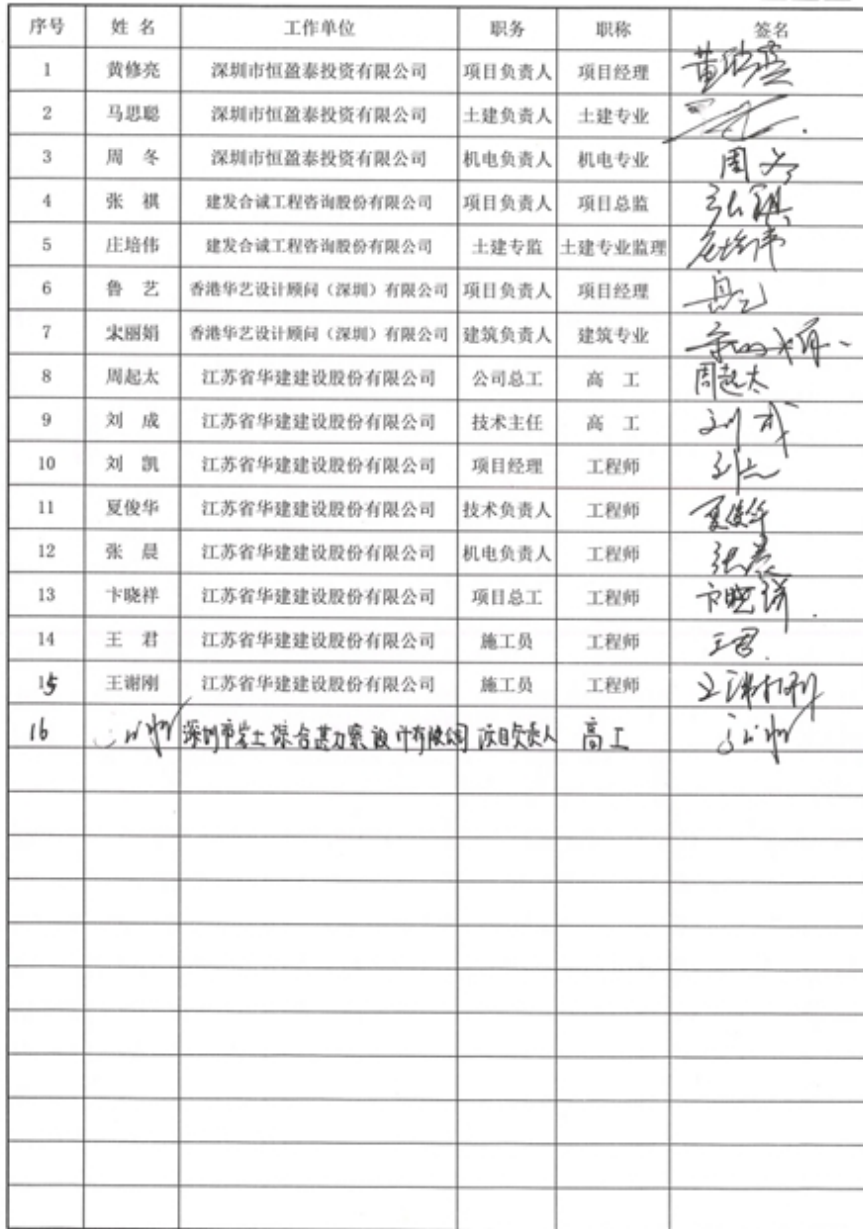 序号 姓 名 工作单位 职务 职称 签名
1 黄修亮 深圳市恒盈泰投资有限公司 项目负责人 项目经理
2 马思聪 深圳市恒盈泰投资有限公司 土建负责人 土建专业
3 周 冬 深圳市恒盈泰投资有限公司 机电负责人 机电专业 周冬
4 张 祺 建发合诚工程咨询股份有限公司 项目负责人 项目总监 张祺
5 庄培伟 建发合诚工程咨询股份有限公司 土建专监 土建专业监理 庄培伟
6 鲁 艺 香港华艺设计顾问（深圳）有限公司 项目负责人 项目经理
7 宋丽娟 香港华艺设计顾问（深圳）有限公司 建筑负责人 建筑专业
8 周起太 江苏省华建建设股份有限公司 公司总工 高 工 周起太
9 刘 成 江苏省华建建设股份有限公司 技术主任 高 工 刘成
10 刘 凯 江苏省华建建设股份有限公司 项目经理 工程师
11 夏俊华 江苏省华建建设股份有限公司 技术负责人 工程师 夏俊华
12 张 晨 江苏省华建建设股份有限公司 机电负责人 工程师 张晨
13 卞晓祥 江苏省华建建设股份有限公司 项目总工 工程师 卞晓祥
14 王 君 江苏省华建建设股份有限公司 施工员 工程师 王君
15 王谢刚 江苏省华建建设股份有限公司 施工员 工程师 王谢刚
16 深圳市岩土综合勘察设计有限公司 项目负责人 高工